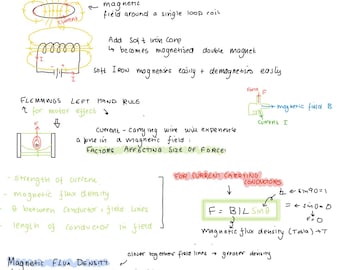 magnetic
field around a single loop coil
Add soft iron core
↳ becomes magnetised double magnet
I
I
soft Iron magnetises easily + demagnetises easily
FLEMMINGS LEFT HAND RULE
for motor effect
F
magnetic field B
current I
current-carrying wire will experience
a force in a magnetic field:
FACTORS AFFECTING SIZE OF FORCE:
- strength of current
- magnetic flux density
- θ between conductor + field lines
- length of conductor in field
FOR CURRENT CARRYING
CONDUCTORS
F = BIL sinθ
sin90=1
sin0=0
Magnetic flux density (Tesla) → T
MAGNETIC FLUX DENSITY
closer together field lines → greater density